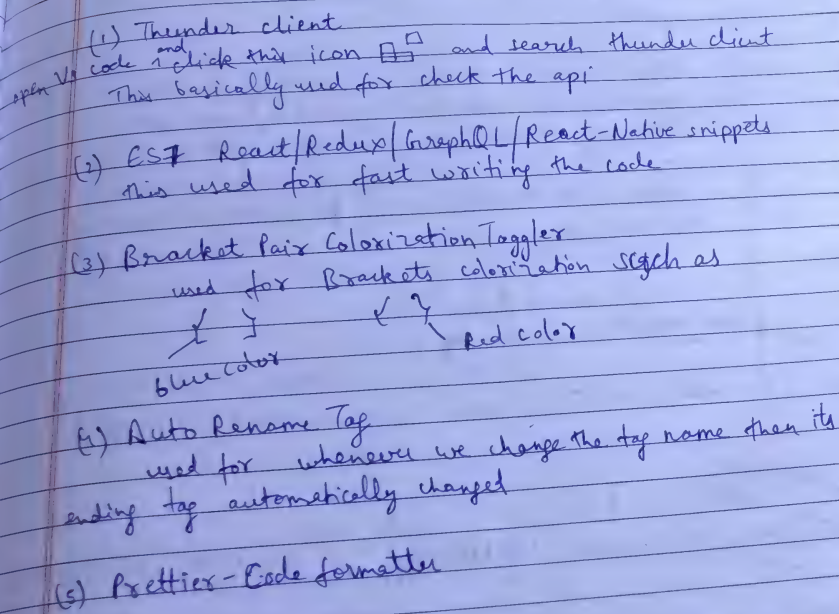 (1) Thunder client
open VS code and click this icon and search thunder client
This basically used for check the api
(2) ES7 React/Redux/GraphQL/React-Native snippets
this used for fast writing the code
(3) Bracket Pair Colorization Toggler
used for Brackets colorization such as
{ } { }
blue color Red color
(4) Auto Rename Tag
used for whenever we change the tag name then its
ending tag automatically changed
(5) Prettier-Code formatter